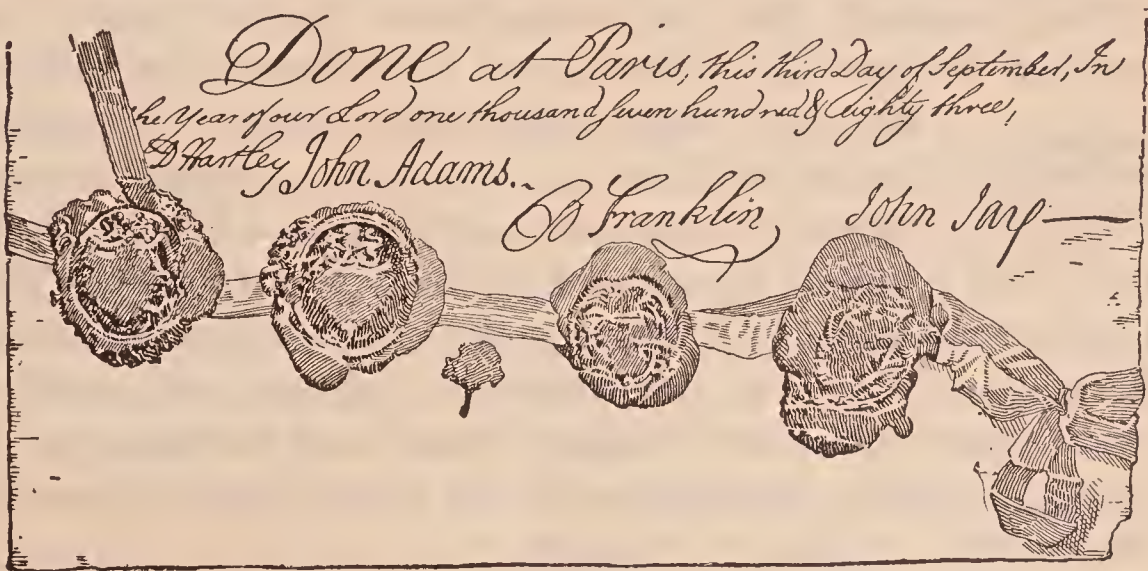 Done at Paris, this third Day of September, In
the Year of our Lord one thousand seven hundred & Eighty three,
D Hartley John Adams.
B Franklin John Jay